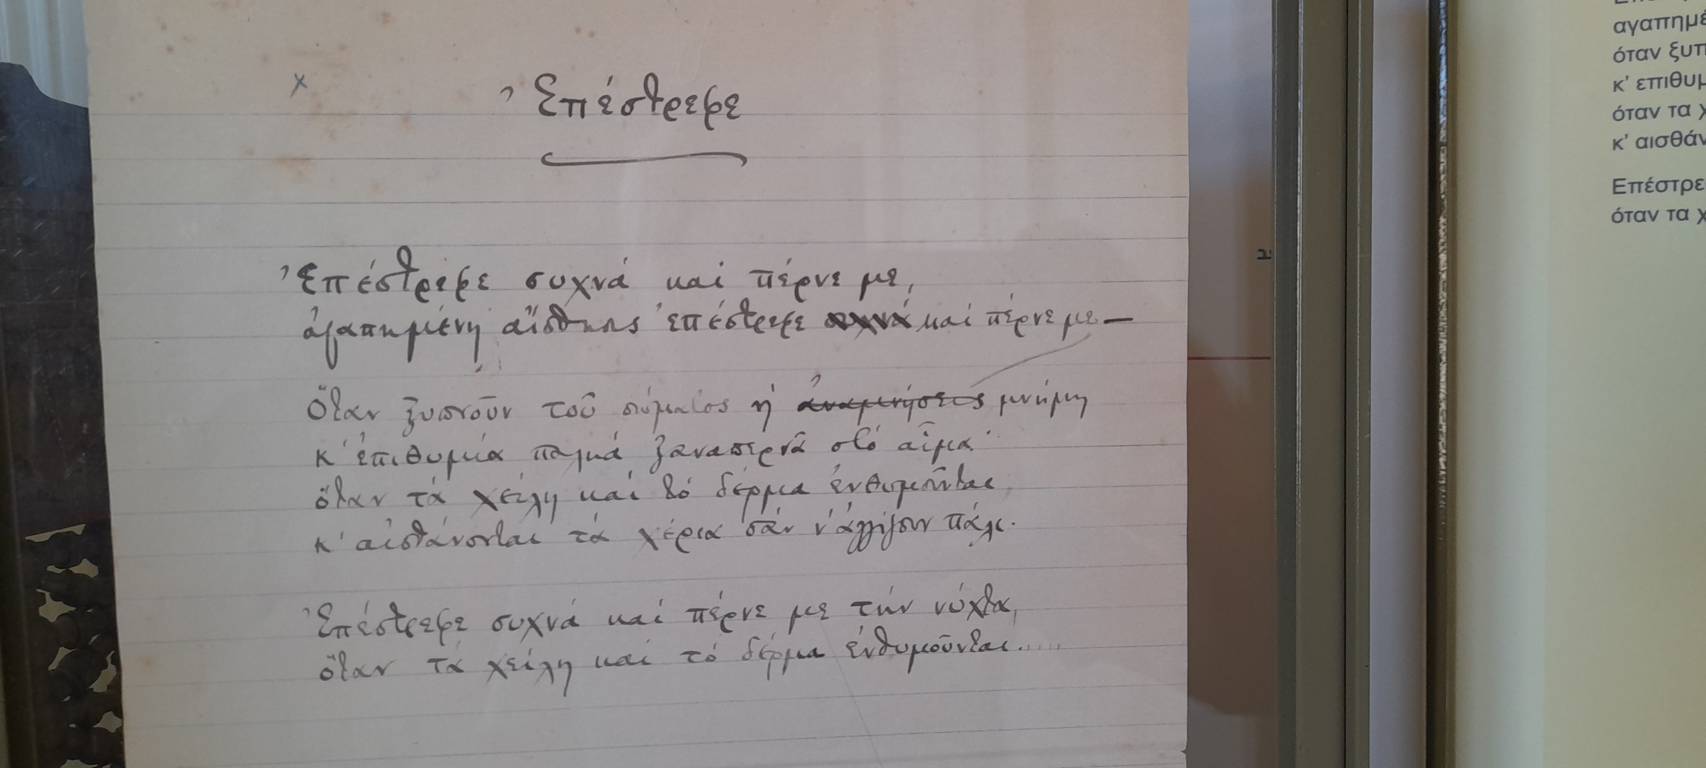 x
Ἐπέστρεφε
Ἐπέστρεφε συχνά καί πέρνε με,
ἀγαπημένη αἴσθησις ἐπέστρεφε συχνά καί πέρνε με —
ὅταν ξυπνοῦν τοῦ σώματος ἡ ἀναμνήσεις μνήμη
κ' ἐπιθυμία παληά ξαναπερνᾶ στό αἷμα·
ὅταν τά χείλη καί τό δέρμα ἐνθυμοῦνται,
κ' αἰσθάνονται τά χέρια σάν ν' ἀγγίζουν πάλι.
Ἐπέστρεφε συχνά καί πέρνε με τήν νύχτα,
ὅταν τά χείλη καί τό δέρμα ἐνθυμοῦνται.....
αγαπημέ
όταν ξυπ
κ' επιθυμ
όταν τα χ
κ' αισθάν
Επέστρε
όταν τα χ